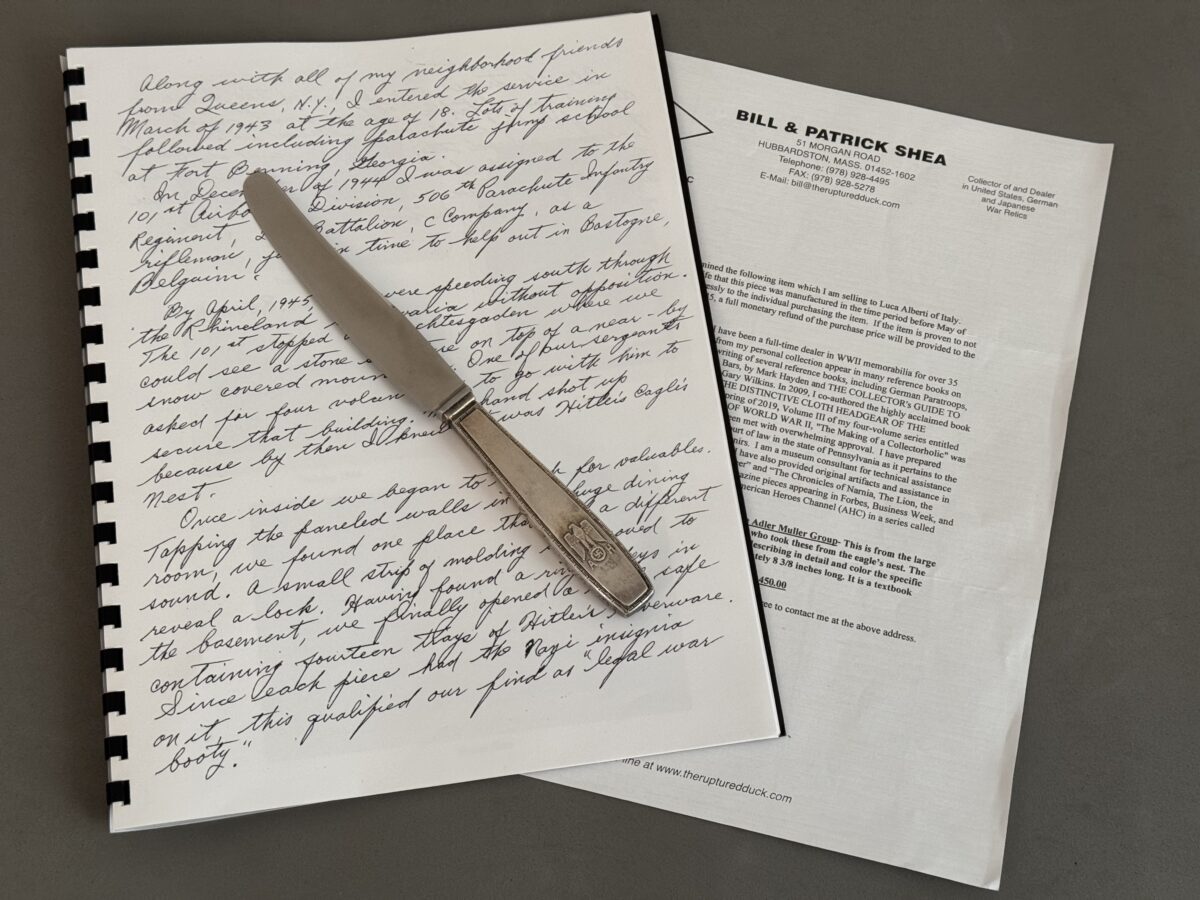 Along with all of my neighborhood friends
from Queens, N.Y., I entered the service in
March of 1943 at the age of 18. Lots of training
followed including parachute jump school
at Fort Benning, Georgia.
In Dece of 1944 I was assigned to the
101st Airbo Division, 506th Parachute Infantry
Regiment, Battalion, C Company, as a
rifleman, in time to help out in Bastogne,
Belguim.
By April, 1945, were speeding south through
the Rhineland varia without opposition.
The 101st stopped chtesgaden where we
could see a stone on top of a near-by
snow covered moun One of our sergeants
asked for four volun to go with him to
secure that building. hand shot up
because by then I kne t was Hitler's Eagle's
Nest.
Once inside we began to h for valuables.
Tapping the paneled walls in huge dining
room, we found one place tha a different
sound. A small strip of molding oved to
reveal a lock. Having found a ri eys in
the basement, we finally opened a safe
containing fourteen trays of Hitler's verware.
Since each piece had the Nazi insignia
on it, this qualified our find as "legal war
booty."
A A
BILL & PATRICK SHEA
51 MORGAN ROAD
HUBBARDSTON, MASS. 01452-1602
Telephone: (978) 928-4495
FAX: (978) 928-5278
E-Mail: bill@therupturedduck.com
Collector of and Dealer
in United States, German
and Japanese
War Relics
c
mined the following item which I am selling to Luca Alberti of Italy.
ife that this piece was manufactured in the time period before May of
lessly to the individual purchasing the item. If the item is proven to not
5, a full monetary refund of the purchase price will be provided to the
I have been a full-time dealer in WWII memorabilia for over 35
from my personal collection appear in many reference books on
writing of several reference books, including German Paratroops,
Bars, by Mark Hayden and THE COLLECTOR'S GUIDE TO
Gary Wilkins. In 2009, I co-authored the highly acclaimed book
THE DISTINCTIVE CLOTH HEADGEAR OF THE
pring of 2019, Volume III of my four-volume series entitled
OF WORLD WAR II, "The Making of a Collectorholic" was
een met with overwhelming approval. I have prepared
ourt of law in the state of Pennsylvania as it pertains to the
nirs. I am a museum consultant for technical assistance
I have also provided original artifacts and assistance in
er" and "The Chronicles of Narnia, The Lion, the
azine pieces appearing in Forbes, Business Week, and
merican Heroes Channel (AHC) in a series called
Adler Muller Group- This is from the large
who took these from the eagle's nest. The
escribing in detail and color the specific
tely 8 3/8 inches long. It is a textbook
450.00
ee to contact me at the above address.
line at www.therupturedduck.com